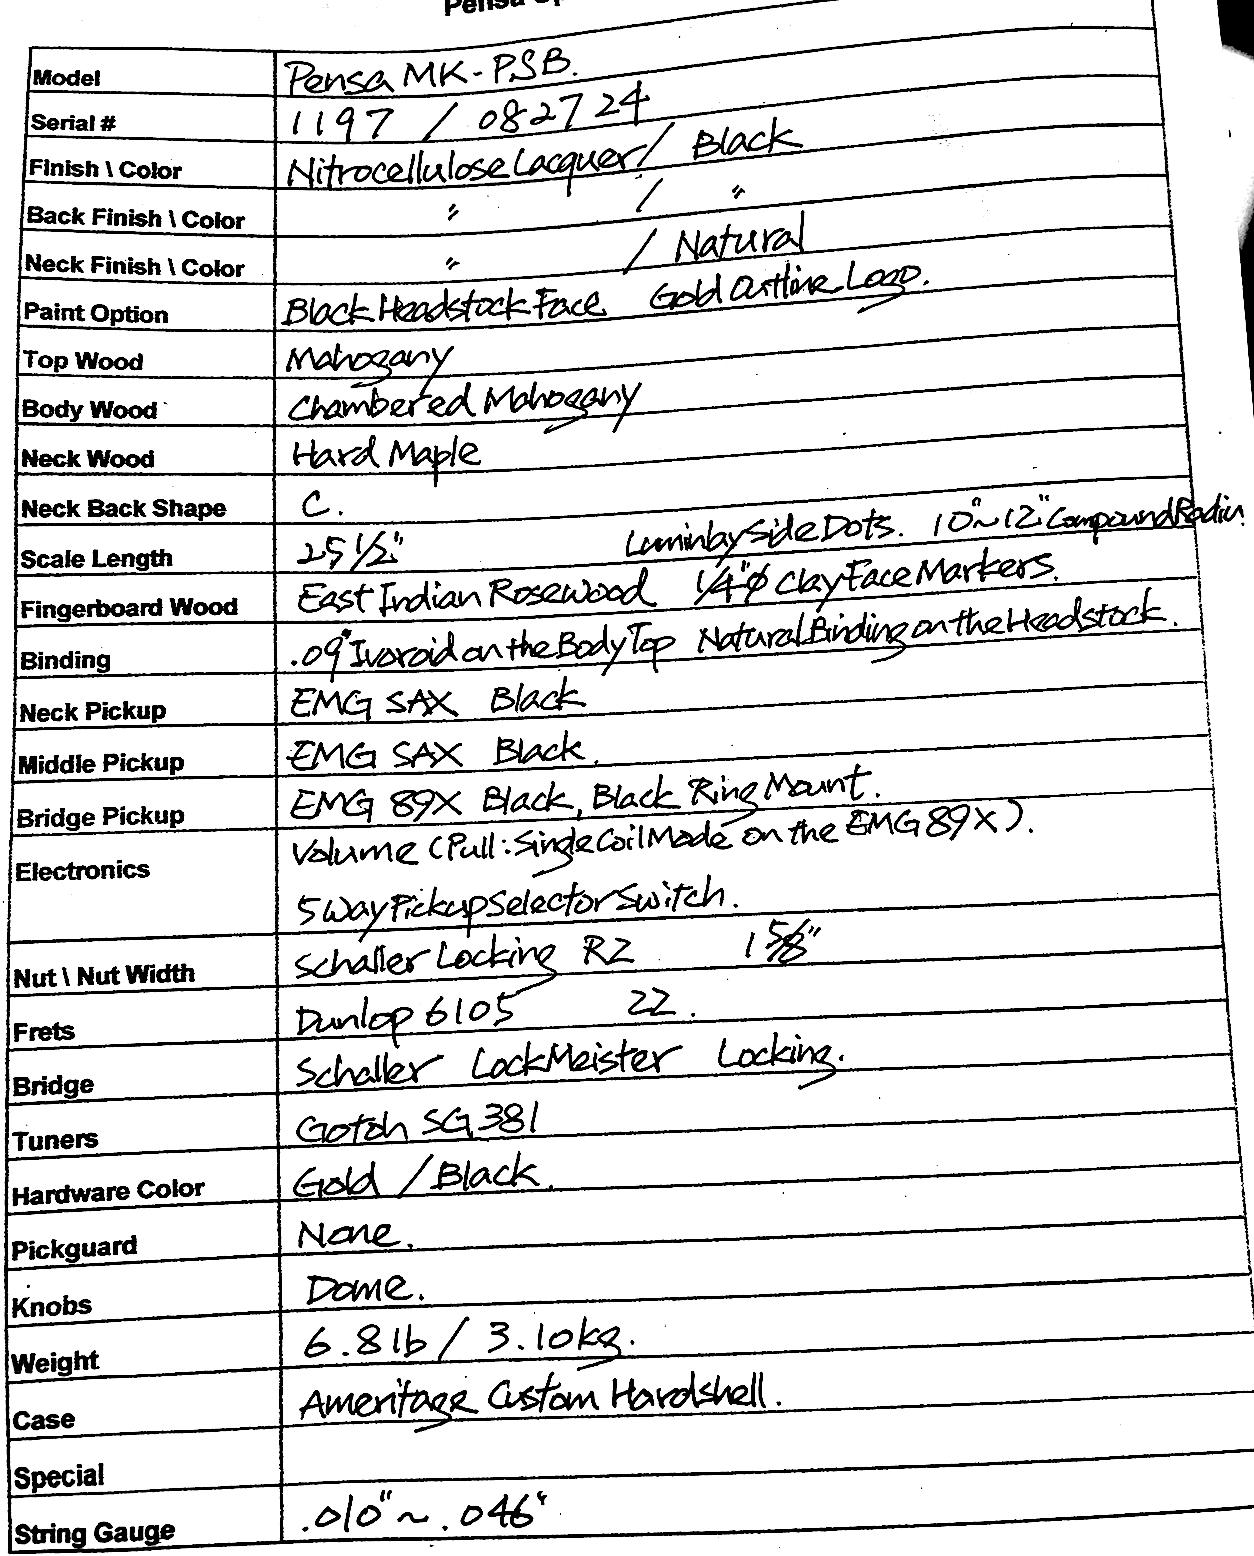 Pensa
Model Pensa MK-PSB.
Serial # 1197 / 082724
Finish \ Color Nitrocellulose Lacquer / Black
Back Finish \ Color " / "
Neck Finish \ Color " / Natural
Paint Option Black Headstock Face Gold Outline Logo.
Top Wood Mahogany
Body Wood Chambered Mahogany
Neck Wood Hard Maple
Neck Back Shape C.
Scale Length 25 1/2" Luminlay Side Dots. 10"~12" Compound Radiu
Fingerboard Wood East Indian Rosewood 1/4"φ Clay Face Markers.
Binding .09" Ivoroid on the Body Top Natural Binding on the Headstock.
Neck Pickup EMG SAX Black
Middle Pickup EMG SAX Black.
Bridge Pickup EMG 89X Black, Black Ring Mount.
Electronics Volume (Pull: Single Coil Mode on the EMG 89X).
5 Way Pickup Selector Switch.
Nut \ Nut Width Schaller Locking R2 1 5/8"
Frets Dunlop 6105 22.
Bridge Schaller LockMeister Locking.
Tuners Gotoh SG381
Hardware Color Gold / Black.
Pickguard None.
Knobs Dome.
Weight 6.8 lb / 3.10kg.
Case Ameritage Custom Hardshell.
Special
String Gauge .010" ~ .046"